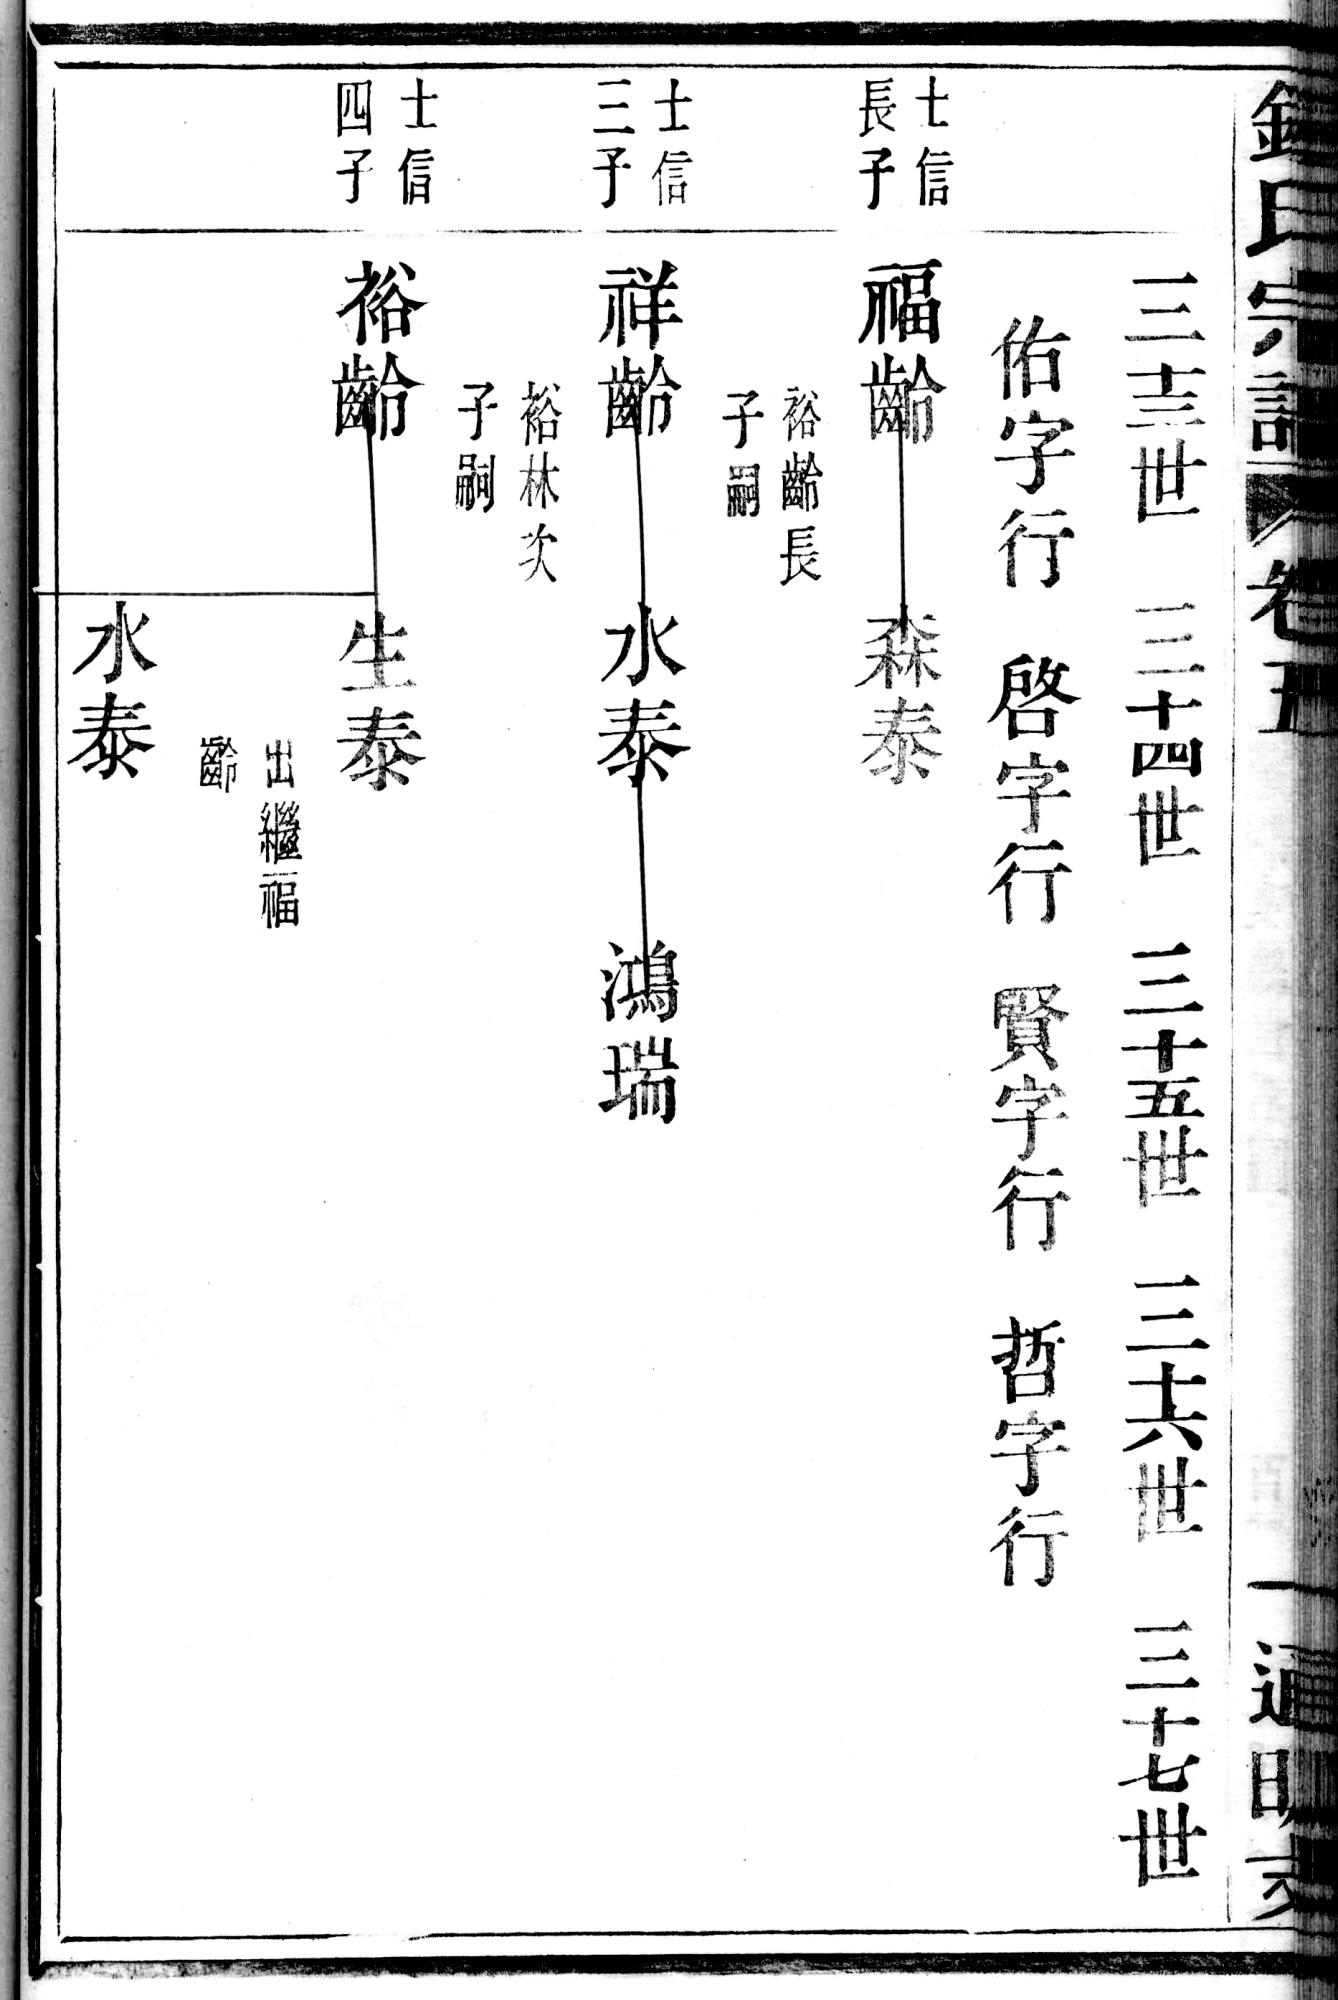 氏宗譜 卷五 一 通明支
三十三世 三十四世 三十五世 三十六世 三十七世
佑字行 啓字行 賢字行 哲字行
士信
長子
福齡 森泰
裕齡長
子嗣
士信
三子
祥齡 水泰 鴻瑞
裕林次
子嗣
士信
四子
裕齡 生泰
出繼福
齡
水泰